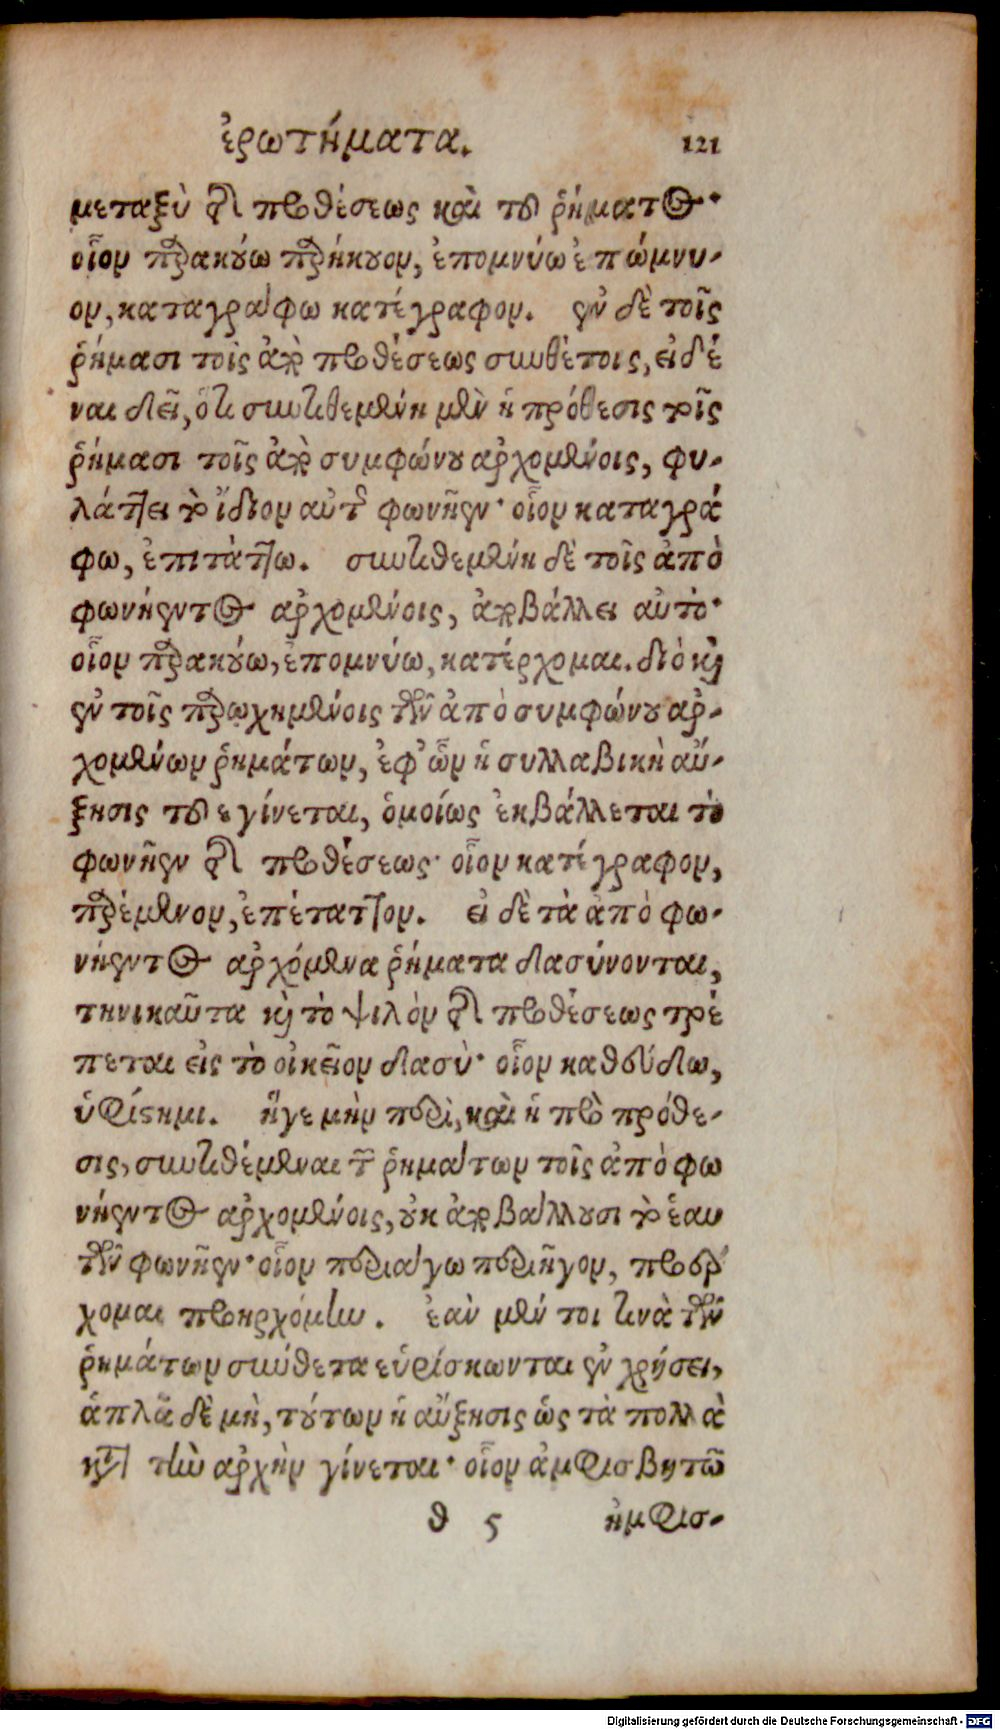 ἐρωτήματα. 121
μεταξὺ τῆς προθέσεως καὶ τοῦ ῥήματος·
οἷον παρακούω παρήκουον, ἐπομνύω ἐπώμνυ-
ον, καταγράφω κατέγραφον. ἐν δὲ τοῖς
ῥήμασι τοῖς ἀπὸ προθέσεως συνθέτοις, εἰδέ
ναι δεῖ, ὅτι συντιθεμένη μὲν ἡ πρόθεσις τοῖς
ῥήμασι τοῖς ἀπὸ συμφώνου ἀρχομένοις, φυ-
λάττει τὸ ἴδιον αὐτῆς φωνῆεν· οἷον καταγρά
φω, ἐπιτάττω. συντιθεμένη δὲ τοῖς ἀπὸ
φωνήεντος ἀρχομένοις, ἀποβάλλει αὐτό·
οἷον παρακούω, ἐπομνύω, κατέρχομαι. διὸ καὶ
ἐν τοῖς παρῳχημένοις τῶν ἀπὸ συμφώνου ἀρ-
χομένων ῥημάτων, ἐφ' ὧν ἡ συλλαβικὴ αὔ-
ξησις τοῦ ε γίνεται, ὁμοίως ἐκβάλλεται τὸ
φωνῆεν τῆς προθέσεως· οἷον κατέγραφον,
παρέμενον, ἐπέταττον. εἰ δὲ τὰ ἀπὸ φω-
νήεντος ἀρχόμενα ῥήματα δασύνονται,
τηνικαῦτα καὶ τὸ ψιλὸν τῆς προθέσεως τρέ
πεται εἰς τὸ οἰκεῖον δασύ· οἷον καθεύδω,
ὑφίστημι. ἥγε μὴν περὶ, καὶ ἡ πρὸ πρόθε-
σις, συντιθέμεναι τῶν ῥημάτων τοῖς ἀπὸ φω
νήεντος ἀρχομένοις, οὐκ ἀποβάλλουσι τὸ ἑαυ
τῶν φωνῆεν· οἷον περιάγω περιῆγον, προέρ
χομαι προηρχόμην. ἐὰν μέν τοι τινὰ τῶν
ῥημάτων σύνθετα εὑρίσκωνται ἐν χρήσει,
ἁπλᾶ δὲ μὴ, τούτων ἡ αὔξησις ὡς τὰ πολλὰ
κατὰ τὴν ἀρχὴν γίνεται· οἷον ἀμφισβητῶ
θ 5 ἠμφισ-
Digitalisierung gefördert durch die Deutsche Forschungsgemeinschaft - DFG